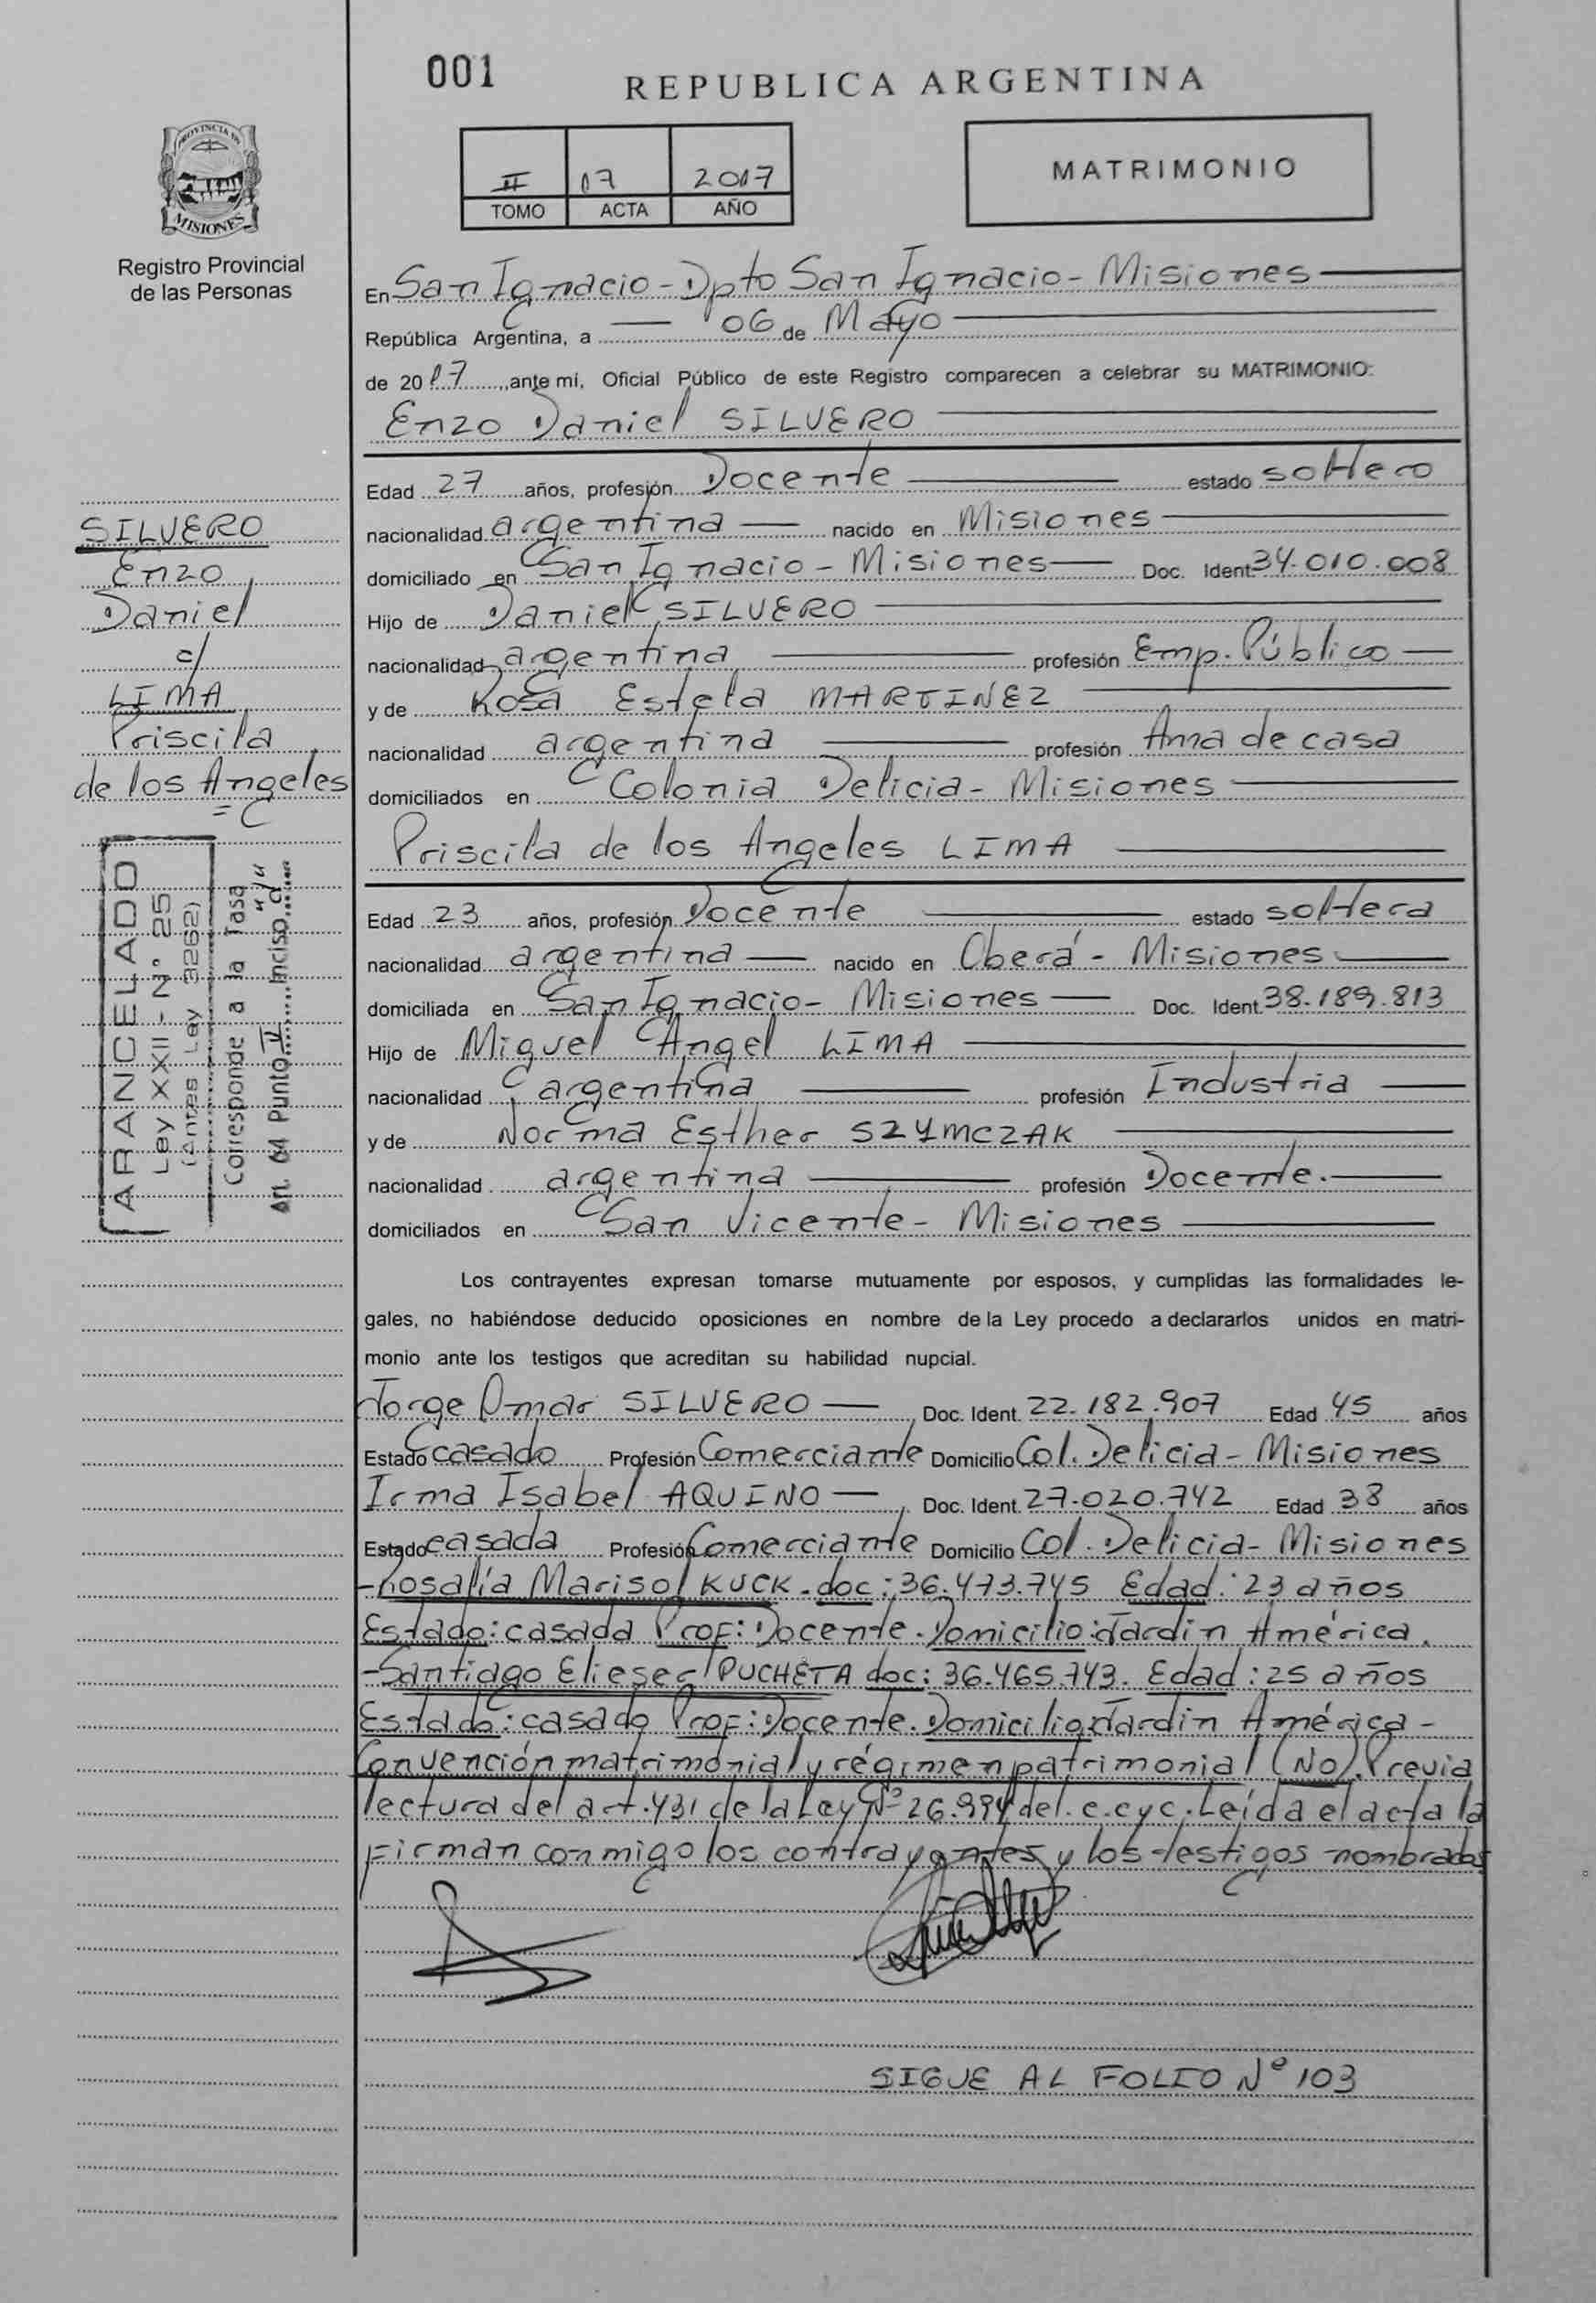 001
REPUBLICA ARGENTINA
II 17 2017
TOMO ACTA AÑO
MATRIMONIO
PROVINCIA DE
MISIONES
Registro Provincial
de las Personas
En San Ignacio - Dpto San Ignacio - Misiones
República Argentina, a 06 de Mayo
de 2017, ante mi, Oficial Público de este Registro comparecen a celebrar su MATRIMONIO:
Enzo Daniel SILVERO
Edad 27 años, profesión Docente estado soltero
nacionalidad argentina nacido en Misiones
domiciliado en San Ignacio - Misiones Doc. Ident. 34.010.008
Hijo de Daniel SILVERO
nacionalidad argentina profesión Emp. Público
y de Rosa Estela MARTINEZ
nacionalidad argentina profesión Ama de casa
domiciliados en Colonia Delicia - Misiones
Priscila de los Angeles LIMA
Edad 23 años, profesión Docente estado soltera
nacionalidad argentina nacido en Oberá - Misiones
domiciliada en San Ignacio - Misiones Doc. Ident. 38.189.813
Hijo de Miguel Angel LIMA
nacionalidad argentina profesión Industria
y de Norma Esther SZYMCZAK
nacionalidad argentina profesión Docente.
domiciliados en San Vicente - Misiones
Los contrayentes expresan tomarse mutuamente por esposos, y cumplidas las formalidades le-
gales, no habiéndose deducido oposiciones en nombre de la Ley procedo a declararlos unidos en matri-
monio ante los testigos que acreditan su habilidad nupcial.
Jorge Omar SILVERO Doc. Ident. 22.182.907 Edad 45 años
Estado casado Profesión Comerciante Domicilio Col. Delicia - Misiones
Irma Isabel AQUINO Doc. Ident. 27.020.742 Edad 38 años
Estado casada Profesión Comerciante Domicilio Col. Delicia - Misiones
- Rosalía Marisol KUCK. doc: 36.473.745 Edad: 23 años
Estado: casada Prof: Docente. Domicilio: Jardin América.
- Santiago Elieser PUCHETA doc: 36.465.743. Edad: 25 años
Estado: casado Prof: Docente. Domicilio: Jardin América -
Convención matrimonial y régimen patrimonial (NO). Previa
lectura del art. 431 de la Ley Nº 26.994 del. c.cyc. Leída el acta la
firman conmigo los contrayentes y los testigos nombrados
SIGUE AL FOLIO Nº 103
SILVERO
Enzo
Daniel
c/
LIMA
Priscila
de los Angeles
=
ARANCELADO
Ley XXII - Nº 25
(Antes Ley 3262)
Corresponde a la Tasa
Art. 64 Punto II Inciso "d"